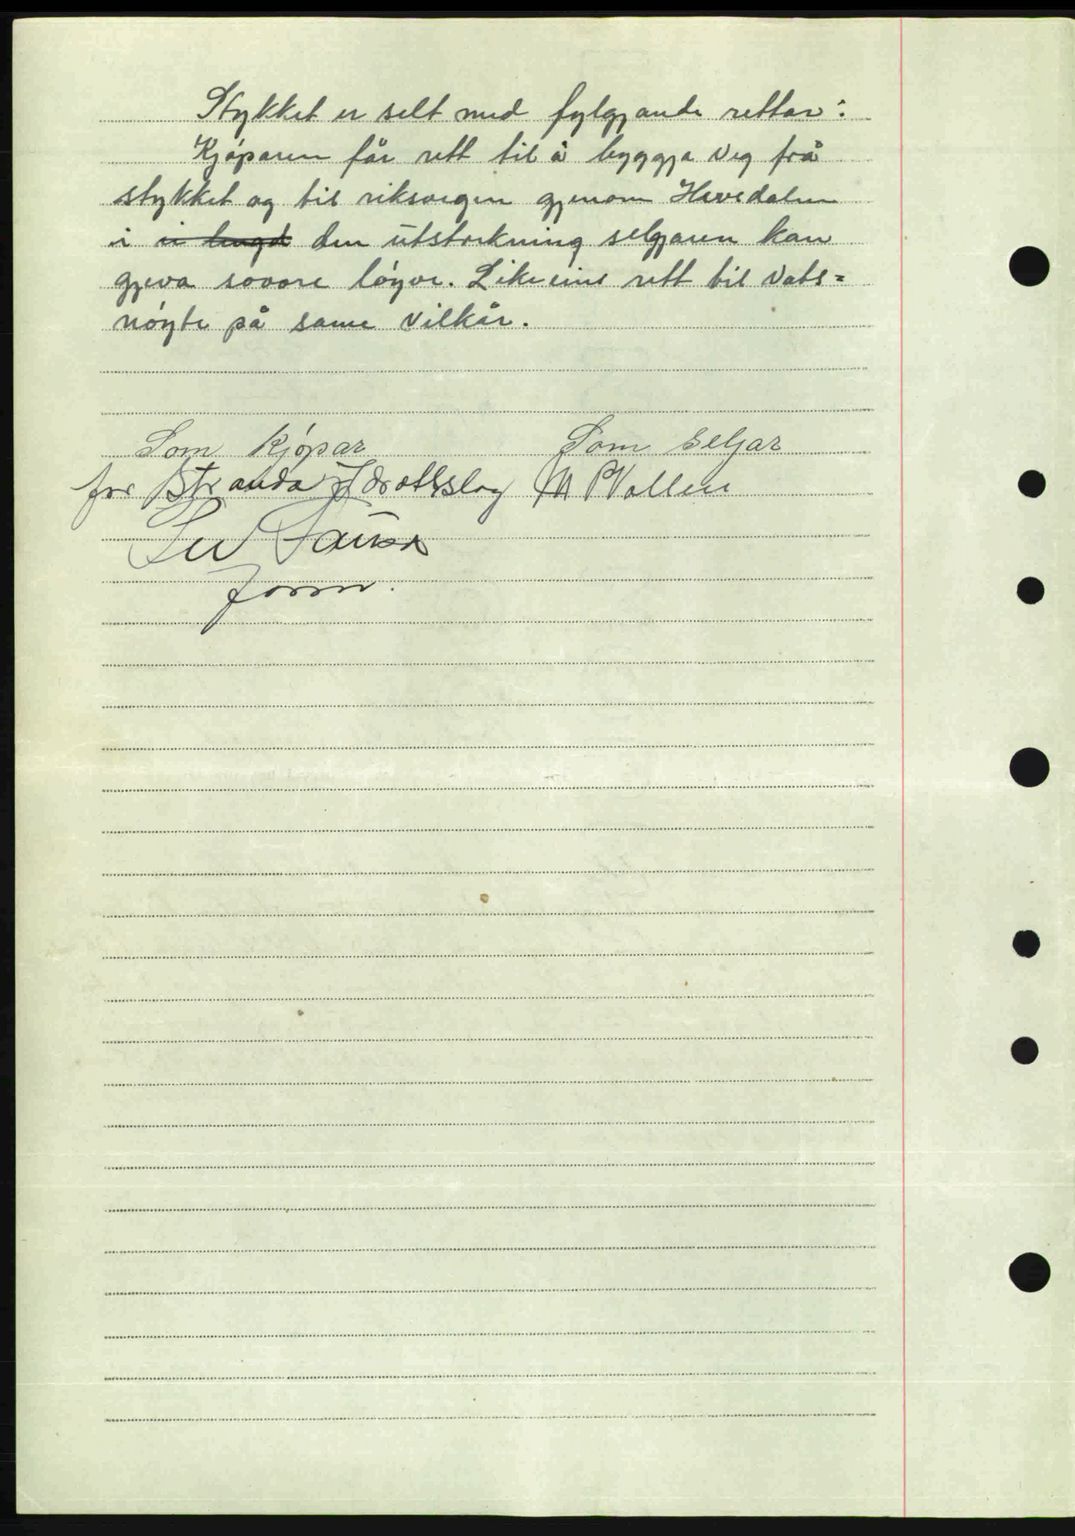 Stykket er selt med fylgjande rettar:
Kjøparen får rett til å byggja veg frå
stykket og til riksvegen gjenom Hevsdalen
i den utstrekning selgjaren kan
gjeva sovore løyve. Likeeins rett til vats=
nøyte på same vilkår.
Som kjøpar Som seljar
for Stranda Idrottslag M P Vollen
form.